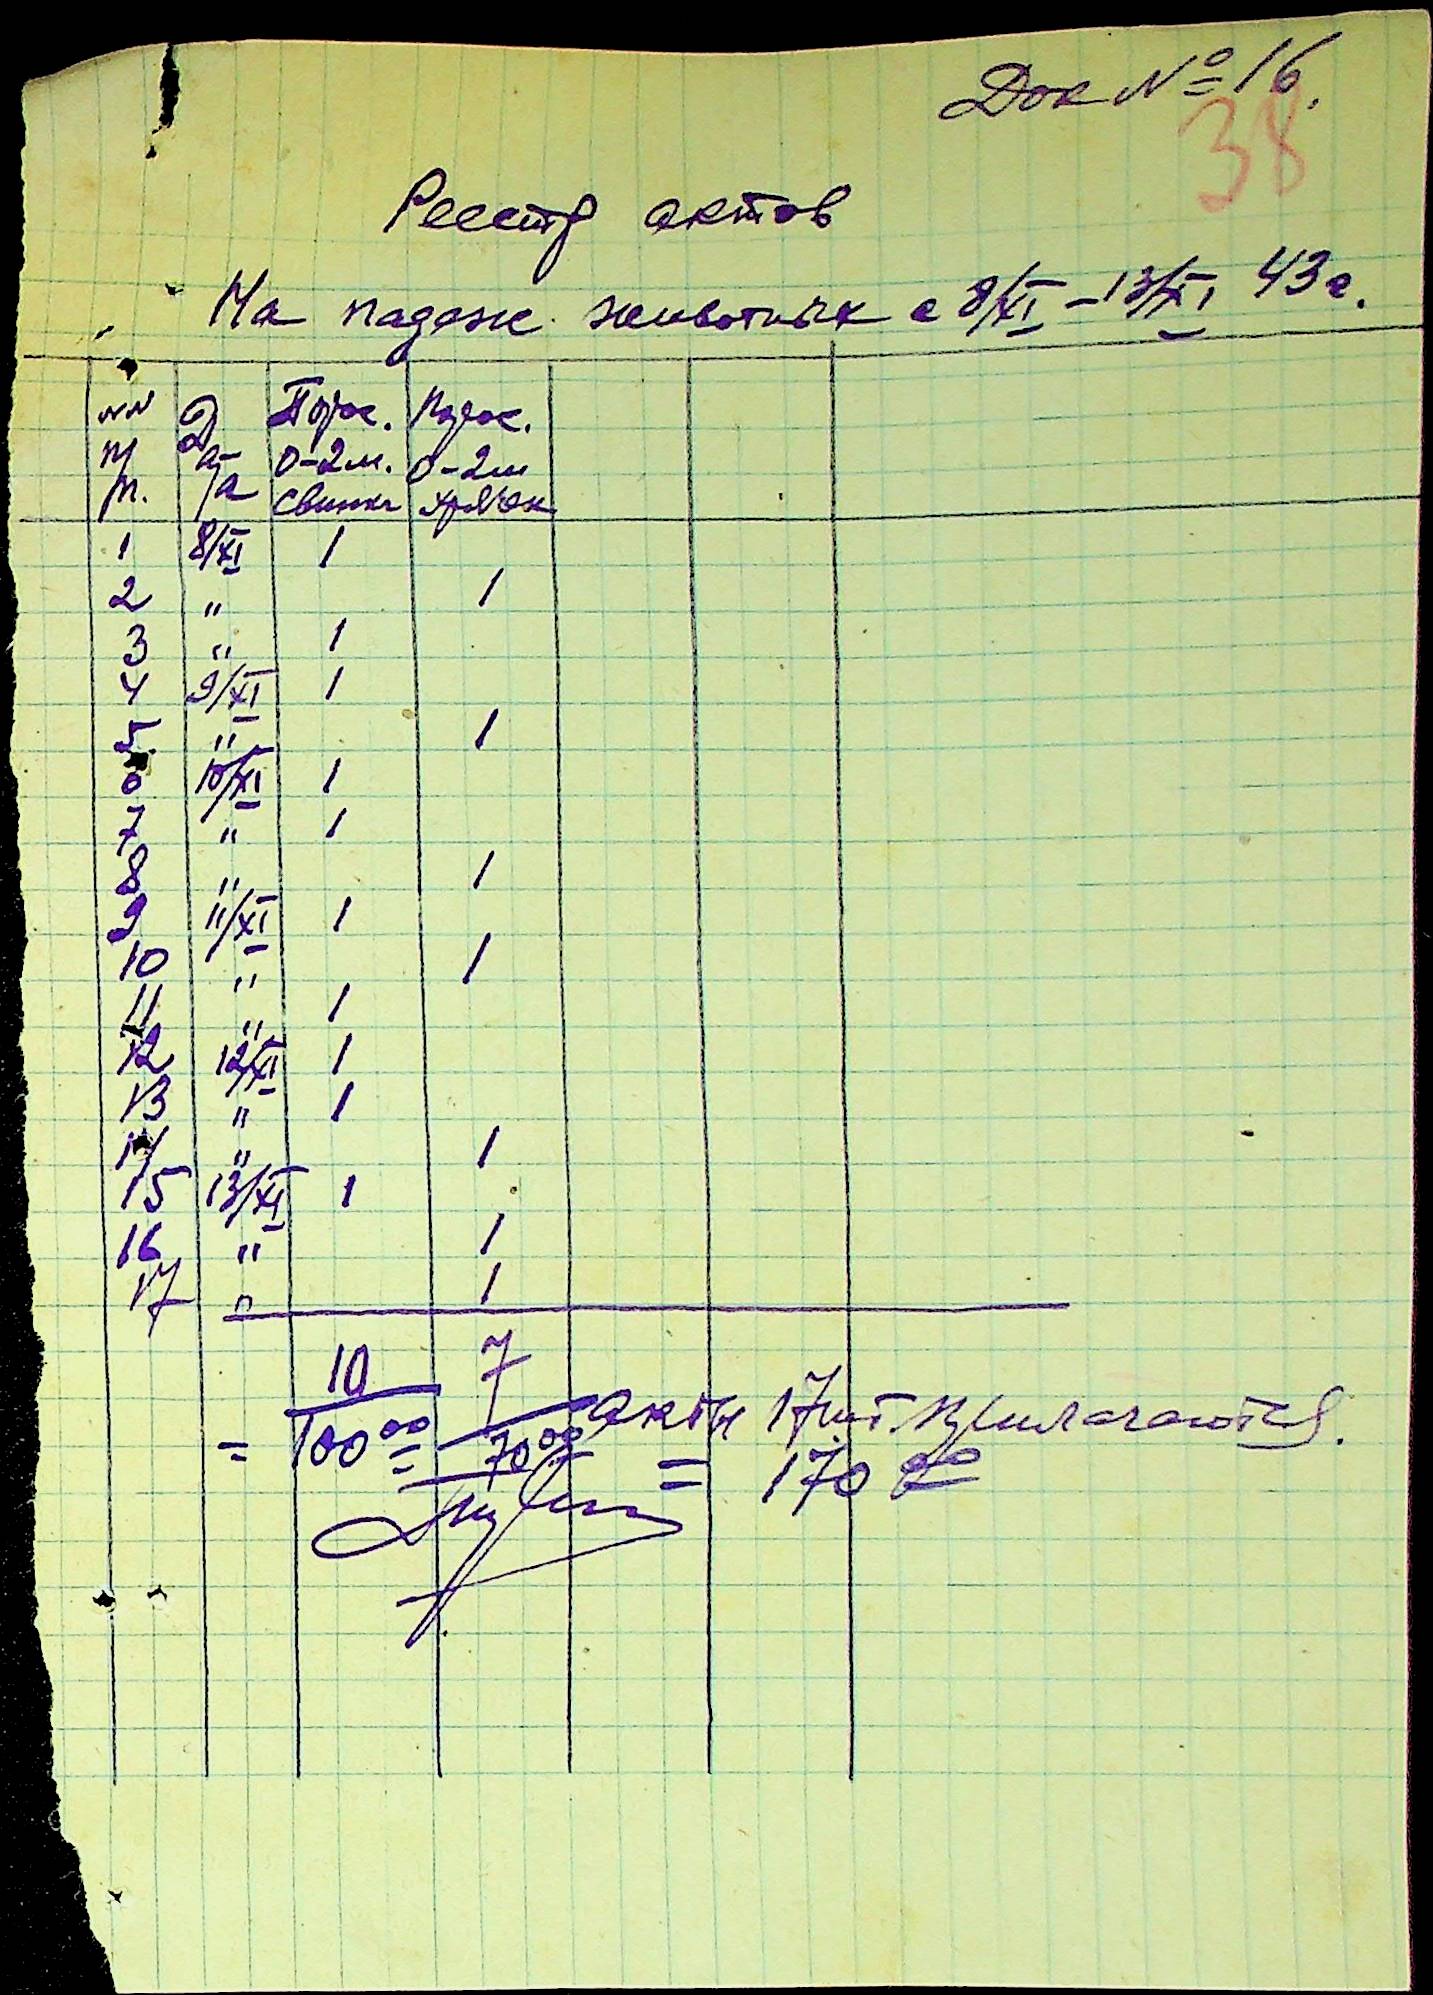 Док № 16.
38
Реестр актов
На падеж животных с 8/XI – 13/XI 43 г.
№№ п/п. Дата Порос. 0-2 м. свинки Порос. 0-2 м хрячек
1 8/XI 1
2 " 1
3 " 1
4 9/XI 1
5 " 1
6 10/XI 1
7 " 1
8 " 1
9 11/XI 1
10 " 1
11 " 1
12 12/XI 1
13 " 1
14 " 1
15 13/XI 1
16 " 1
17 " 1
10 7
Акты 17 шт. прилагаются.
= 100 00 70 00 = 170 00